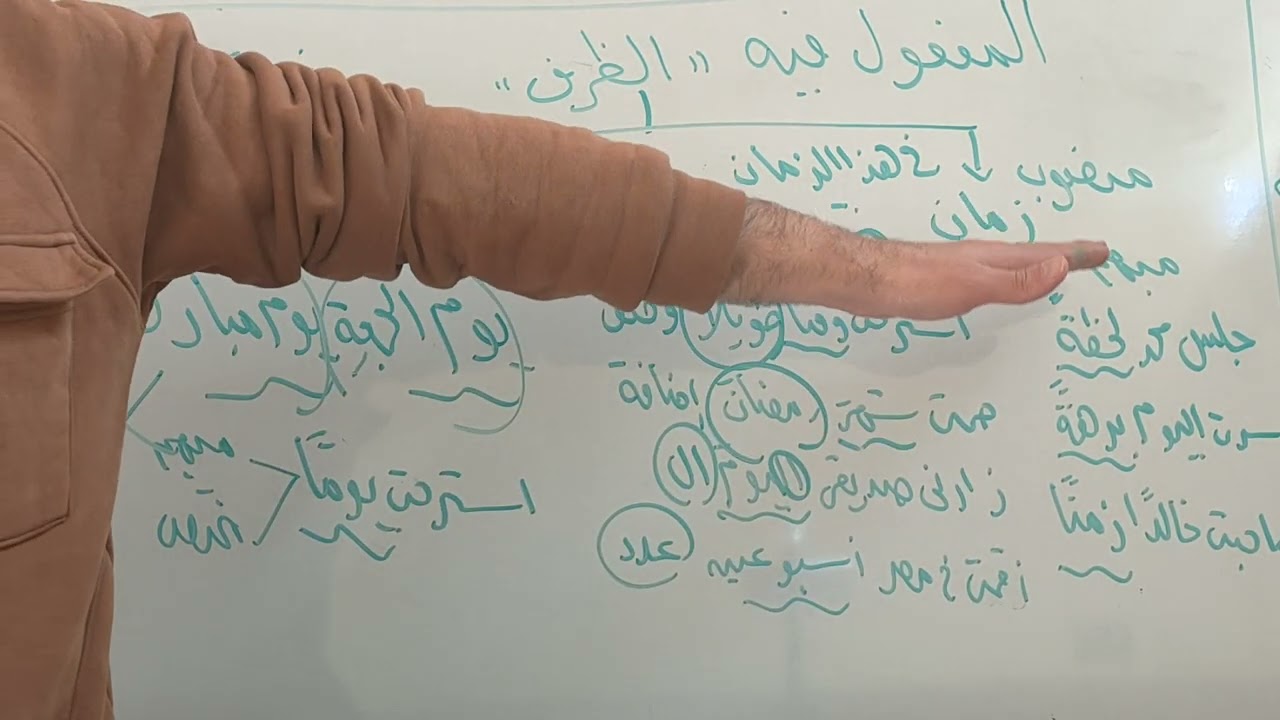 المفعول فيه "الظرف"
منصوب
زمان
مبهم
جلس محمد لحظةً
سرت اليوم برهةً
صاحبت خالدًا زمنًا
استرحت وقتا طويلا وصف
صمت شهر رمضان إضافة
زارني صديقي اليوم ال
أقمت في مصر أسبوعين عدد
يوم الجمعة
يوم مبارك
استرحت يومًا
مبهم
مختص